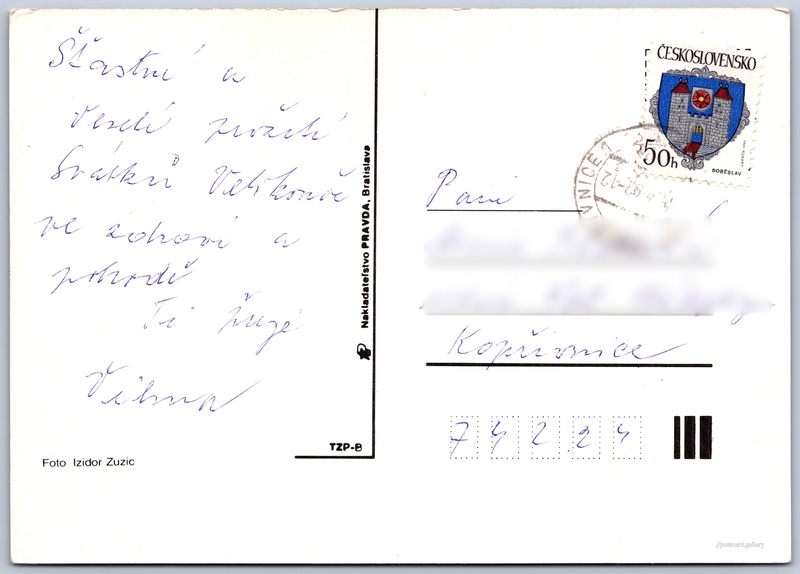 Šťastné a
veselé prožití
Svátků Velikonoc
ve zdraví a
pohodě
Ti přeje
Vilma
Foto Izidor Zuzic
TZP-B
Nakladateľstvo PRAVDA, Bratislava
ČESKOSLOVENSKO
50h
SOBĚSLAV
VNICE 1
92-12
Paní
Kopřivnice
74224